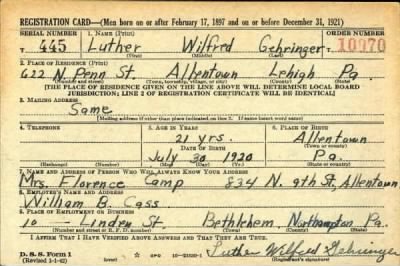 REGISTRATION CARD—(Men born on or after February 17, 1897 and on or before December 31, 1921)
SERIAL NUMBER 1. NAME (Print) ORDER NUMBER
T 445 Luther Wilfred Gehringer 10070
(First) (Middle) (Last)
2. PLACE OF RESIDENCE (Print)
622 N. Penn St. Allentown Lehigh Pa.
(Number and street) (Town, township, village, or city) (County) (State)
[THE PLACE OF RESIDENCE GIVEN ON THE LINE ABOVE WILL DETERMINE LOCAL BOARD
JURISDICTION; LINE 2 OF REGISTRATION CERTIFICATE WILL BE IDENTICAL]
3. MAILING ADDRESS
Same
[Mailing address if other than place indicated on line 2. If same insert word same]
4. TELEPHONE 5. AGE IN YEARS 6. PLACE OF BIRTH
21 yrs. Allentown
DATE OF BIRTH (Town or county)
July 30 1920 Pa.
(Exchange) (Number) (Mo.) (Day) (Yr.) (State or country)
7. NAME AND ADDRESS OF PERSON WHO WILL ALWAYS KNOW YOUR ADDRESS
Mrs. Florence Camp 834 N. 9th St, Allentown
8. EMPLOYER'S NAME AND ADDRESS
William B. Cass
9. PLACE OF EMPLOYMENT OR BUSINESS
10 — Linder St. Bethlehem, Northampton Pa.
(Number and street or R. F. D. number) (Town) (County) (State)
I AFFIRM THAT I HAVE VERIFIED ABOVE ANSWERS AND THAT THEY ARE TRUE.
D. S. S. Form 1
(Revised 1-1-42) GPO Luther Wilfred Gehringer
(Registrant's signature)